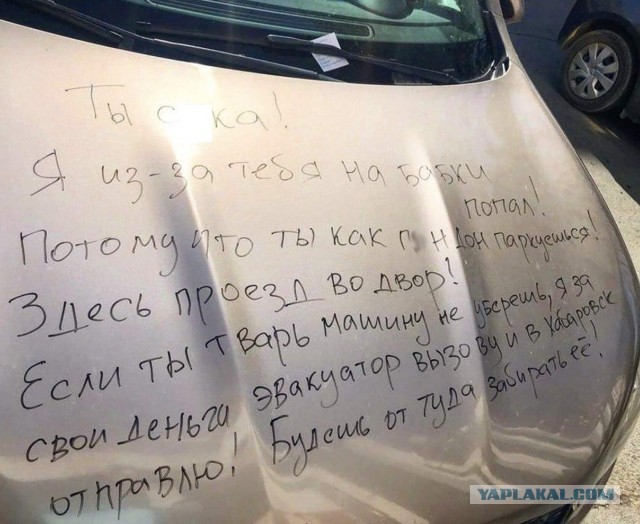 Ты с ка!
Я из-за тебя на бабки
попал!
Потому что ты как г н дон паркуешься!
Здесь проезд во двор!
Если ты тварь машину не уберешь, я за
свои деньги эвакуатор вызову и в Хабаровск
отправлю! Будешь от туда забирать её!
YAPLAKAL.COM